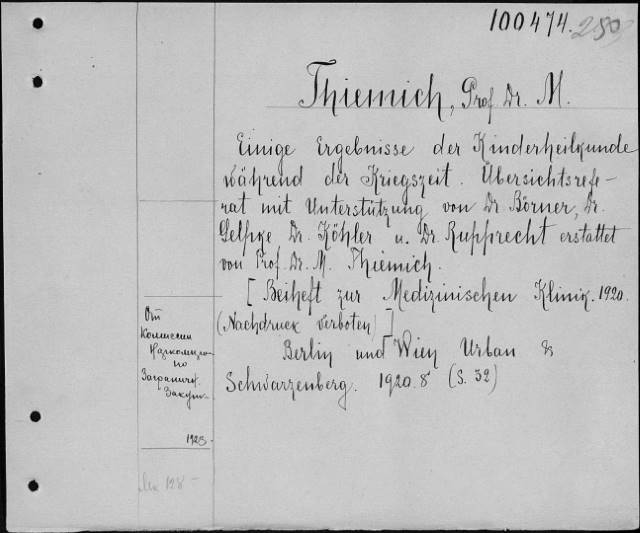 100474. 250
Thiemich, Prof. Dr. M.
Einige Ergebnisse der Kinderheilkunde
während der Kriegszeit. Übersichtsrefe-
rat mit Unterstützung von Dr. Börner, Dr.
Gelpke Dr. Köhler u. Dr. Rupprecht erstattet
von Prof. Dr. M. Thiemich.
[Beiheft zur Medizinischen Klinik. 1920.
(Nachdruck verboten)]
Berlin und Wien Urban &
Schwarzenberg. 1920. 8° (S. 32)
От
Комиссии
по
Загранич.
Закупк.
1925.
128 –